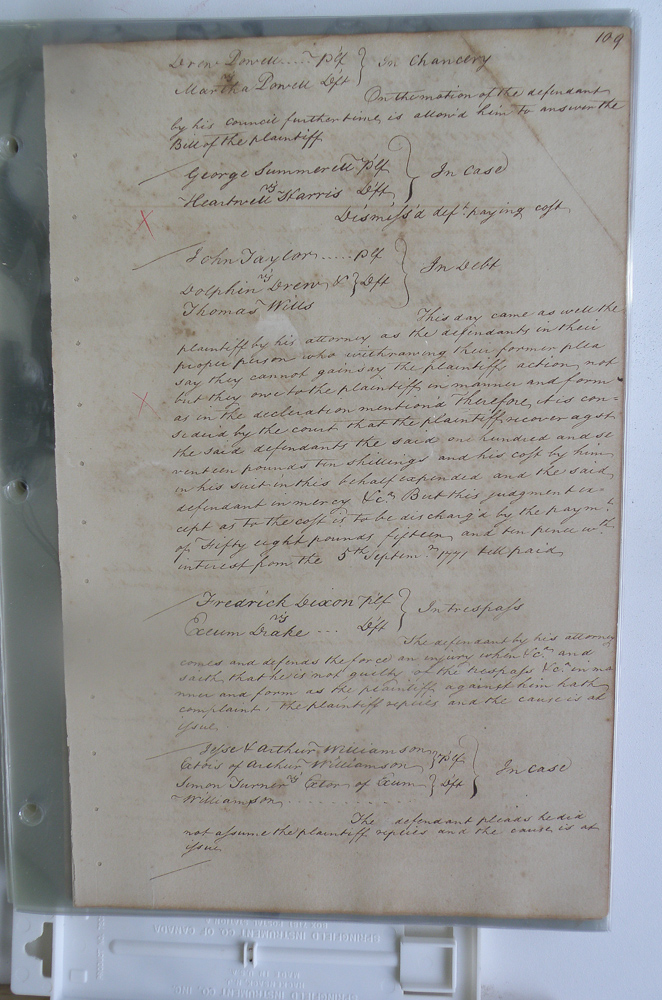 109
Drew Powell .... Plf } In Chancery
vs
Martha Powell Dft
On the motion of the defendant
by his council further time is allow'd him to answer the
Bill of the plaintiff
George Summerell Plf } In Case
vs
Heartwell Harris Dft
Dismiss'd deft paying cost
John Taylor ..... Plf } In Debt
vs
Dolphin Drew & } Dft
Thomas Wills
This day came as well the
plaintiff by his attorney as the defendants in their
proper person who withdrawing their former plea
say they cannot gainsay the plaintiffs action, not
but they owe to the plaintiff in manner and form
as in the decleration mention'd Therefore it is con=
seder'd by the court that the plaintiff recover agst
the said defendants the said one hundred and se
venteen pounds ten shillings and his cost by him
in his suit in this behalf expended and the said
defendant in mercy &ca But this judgment ex-
cept as to the cost is to be discharg'd by the paymt
of Fifty eight pounds fifteen and ten pence wth
interest from the 5th Septemr 1771 till paid
Fredrick Dixon Plf } In trespass
vs
Exum Drake ... Dft
The defendant by his attorney
comes and defends the force an injury when &ca and
saith that he is not guilty of the trespass &ca in ma
nner and form as the plaintiff against him hath
complain'd, the plaintiff replies and the cause is at
issue
Jesse & Arthur Williamson } Plf
Exors of Arthur Williamson } In Case
vs
Simon Turner Exor of Exum } Dft
Williamson
The defendant pleads he did
not assume the plaintiff replies and the cause is at
issue
SPRINGFIELD INSTRUMENT CO. OF CANADA
SPRINGFIELD INSTRUMENT CO., INC.
MADE IN U.S.A.